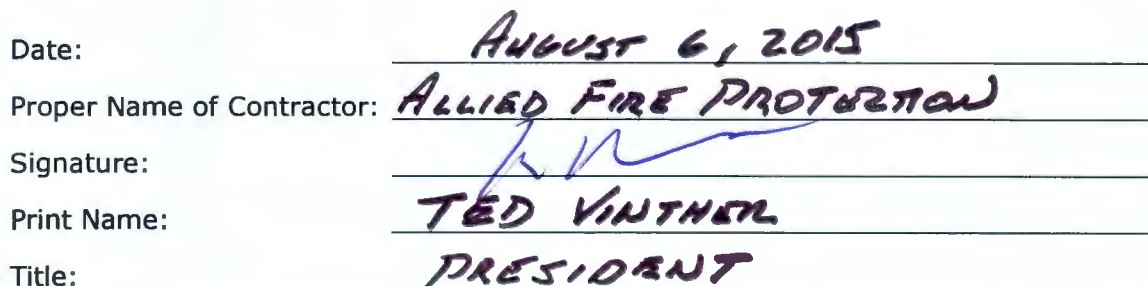 Date: AUGUST 6, 2015
Proper Name of Contractor: ALLIED FIRE PROTECTION
Signature:
Print Name: TED VINTHER
Title: PRESIDENT